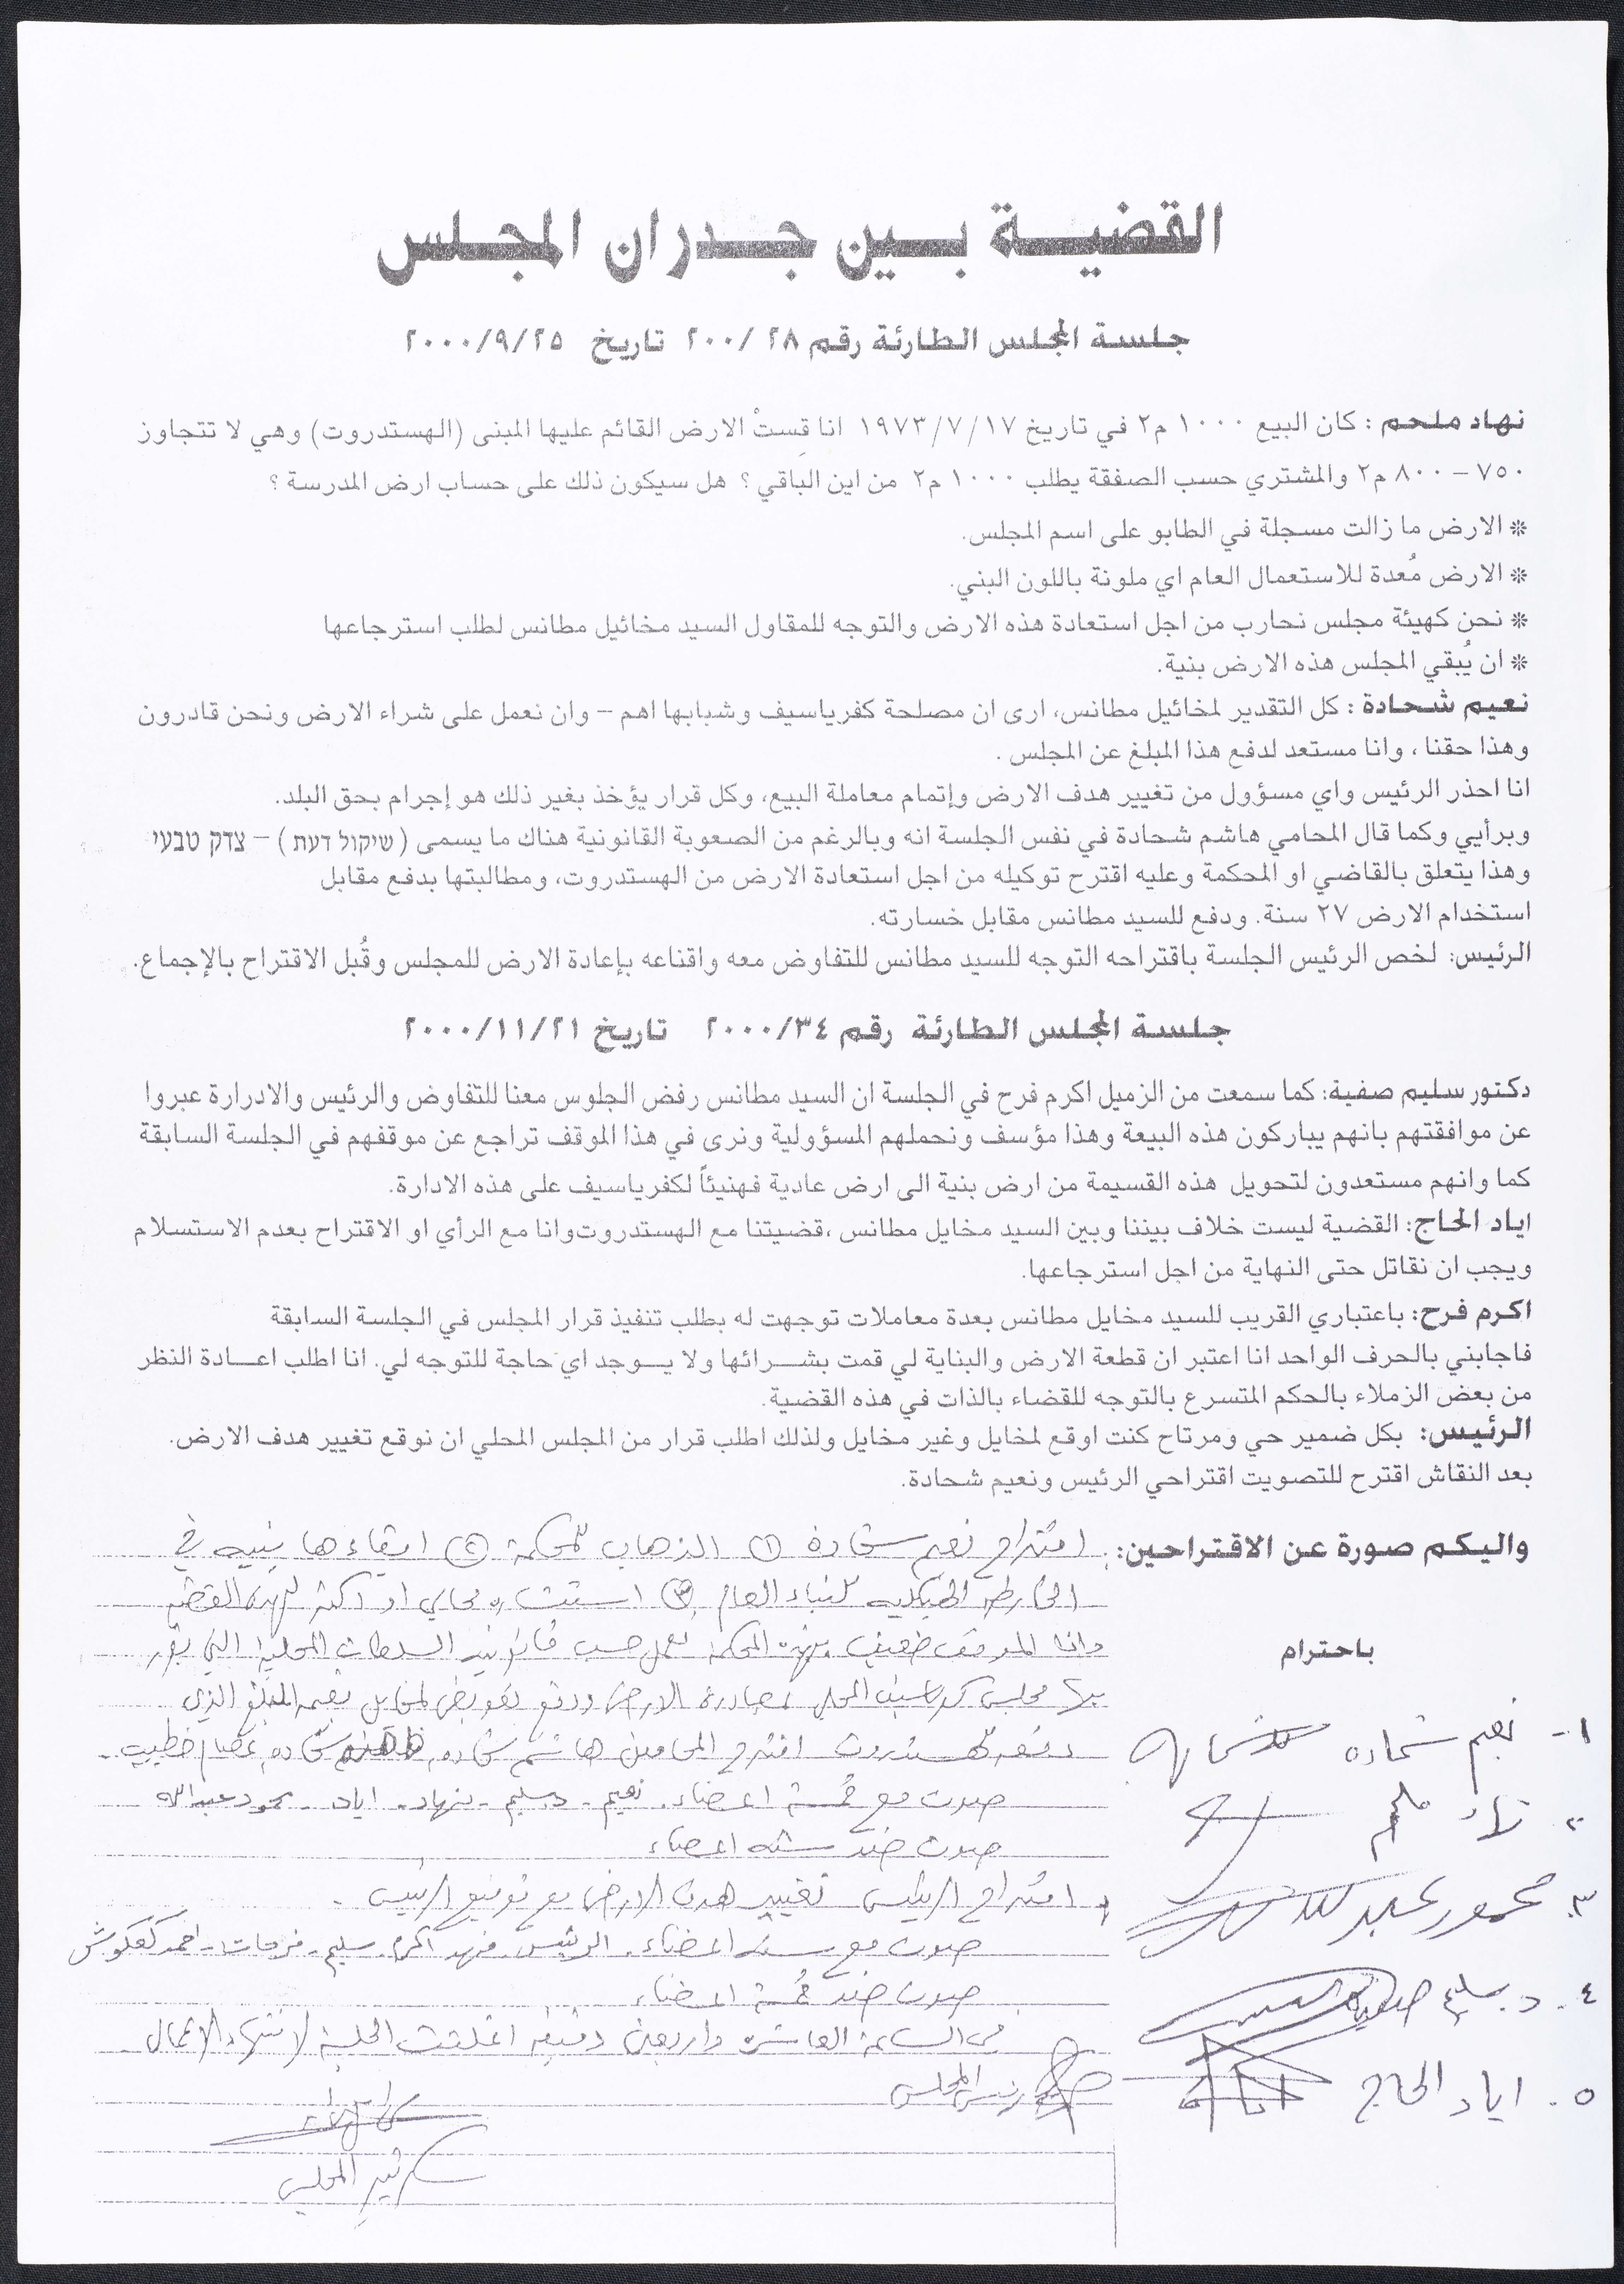 القضية بين جدران المجلس
جلسة المجلس الطارئة رقم ٢٨ /٢٠٠ تاريخ ٢٠٠٠/٩/٢٥
نهاد ملحم : كان البيع ١٠٠٠ م٢ في تاريخ ١٩٧٣/٧/١٧ انا قِستْ الارض القائم عليها المبنى (الهستدروت) وهي لا تتجاوز
٧٥٠ – ٨٠٠ م٢ والمشتري حسب الصفقة يطلب ١٠٠٠ م٢ من اين الباقي ؟ هل سيكون ذلك على حساب ارض المدرسة ؟
* الارض ما زالت مسجلة في الطابو على اسم المجلس.
* الارض مُعدة للاستعمال العام اي ملونة باللون البني.
* نحن كهيئة مجلس نحارب من اجل استعادة هذه الارض والتوجه للمقاول السيد مخائيل مطانس لطلب استرجاعها
* ان يُبقي المجلس هذه الارض بنية.
نعيم شحادة : كل التقدير لمخائيل مطانس، ارى ان مصلحة كفرياسيف وشبابها اهم – وان نعمل على شراء الارض ونحن قادرون
وهذا حقنا ، وانا مستعد لدفع هذا المبلغ عن المجلس .
انا احذر الرئيس واي مسؤول من تغيير هدف الارض وإتمام معاملة البيع، وكل قرار يؤخذ بغير ذلك هو إجرام بحق البلد.
وبرأيي وكما قال المحامي هاشم شحادة في نفس الجلسة انه وبالرغم من الصعوبة القانونية هناك ما يسمى (שיקול דעת) – צדק טבעי
وهذا يتعلق بالقاضي او المحكمة وعليه اقترح توكيله من اجل استعادة الارض من الهستدروت، ومطالبتها بدفع مقابل
استخدام الارض ٢٧ سنة. ودفع للسيد مطانس مقابل خسارته.
الرئيس: لخص الرئيس الجلسة باقتراحه التوجه للسيد مطانس للتفاوض معه واقناعه بإعادة الارض للمجلس وقُبل الاقتراح بالإجماع.
جلسة المجلس الطارئة رقم ٢٠٠٠/٣٤ تاريخ ٢٠٠٠/١١/٢١
دكتور سليم صفية: كما سمعت من الزميل اكرم فرح في الجلسة ان السيد مطانس رفض الجلوس معنا للتفاوض والرئيس والادرارة عبروا
عن موافقتهم بانهم يباركون هذه البيعة وهذا مؤسف ونحملهم المسؤولية ونرى في هذا الموقف تراجع عن موقفهم في الجلسة السابقة
كما وانهم مستعدون لتحويل هذه القسيمة من ارض بنية الى ارض عادية فهنيئاً لكفرياسيف على هذه الادارة.
اياد الحاج: القضية ليست خلاف بيننا وبين السيد مخايل مطانس ،قضيتنا مع الهستدروت وانا مع الرأي او الاقتراح بعدم الاستسلام
ويجب ان نقاتل حتى النهاية من اجل استرجاعها.
اكرم فرح: باعتباري القريب للسيد مخايل مطانس بعدة معاملات توجهت له بطلب تنفيذ قرار المجلس في الجلسة السابقة
فاجابني بالحرف الواحد انا اعتبر ان قطعة الارض والبناية لي قمت بشرائها ولا يوجد اي حاجة للتوجه لي. انا اطلب اعادة النظر
من بعض الزملاء بالحكم المتسرع بالتوجه للقضاء بالذات في هذه القضية.
الرئيس: بكل ضمير حي ومرتاح كنت اوقع لمخايل وغير مخايل ولذلك اطلب قرار من المجلس المحلي ان نوقع تغيير هدف الارض.
بعد النقاش اقترح للتصويت اقتراحي الرئيس ونعيم شحادة.
واليكم صورة عن الاقتراحين: اقتراح نعيم شحادة ① الذهاب للمحكمة ② ابقاءها بنيه في
الخارطة الهيكليه للبناء العام ③ استشاره محامي او اكثر لهذه القضيه
باحترام
واذا الموقف ضعيف بهذه المحكمة نعمل حسب قانون السلطات المحلية التي يقرر
مجلس كفرياسيف المحلي مصادرة الارض ودفع تعويض لمخايل بقيمة المبلغ الذي
دفعه للهستدروت اقترح المحامين هاشم شحاده، شحاده، عصام خطيب -
صوت مع خمسة اعضاء. نعيم - د. سليم - نهاد - اياد - محمود عبدالله
صوت ضد سته اعضاء
اقتراح الرئيس تغيير هدف الارض مع توقيع الرئيس .
صوت مع سته اعضاء. الرئيس - فهد - اكرم - سليم - فرحات - احمد كعكوش
صوت ضد خمسة اعضاء
في الساعة العاشرة واربعين دقيقه اغلقت الجلسة لانتهاء الاعمال
رئيس المجلس
سكرتير المجلس
١- نعيم شحاده
٢. نهاد ملحم
٣. محمود عبدالله
٤. د. سليم صفيه
٥. اياد الحاج